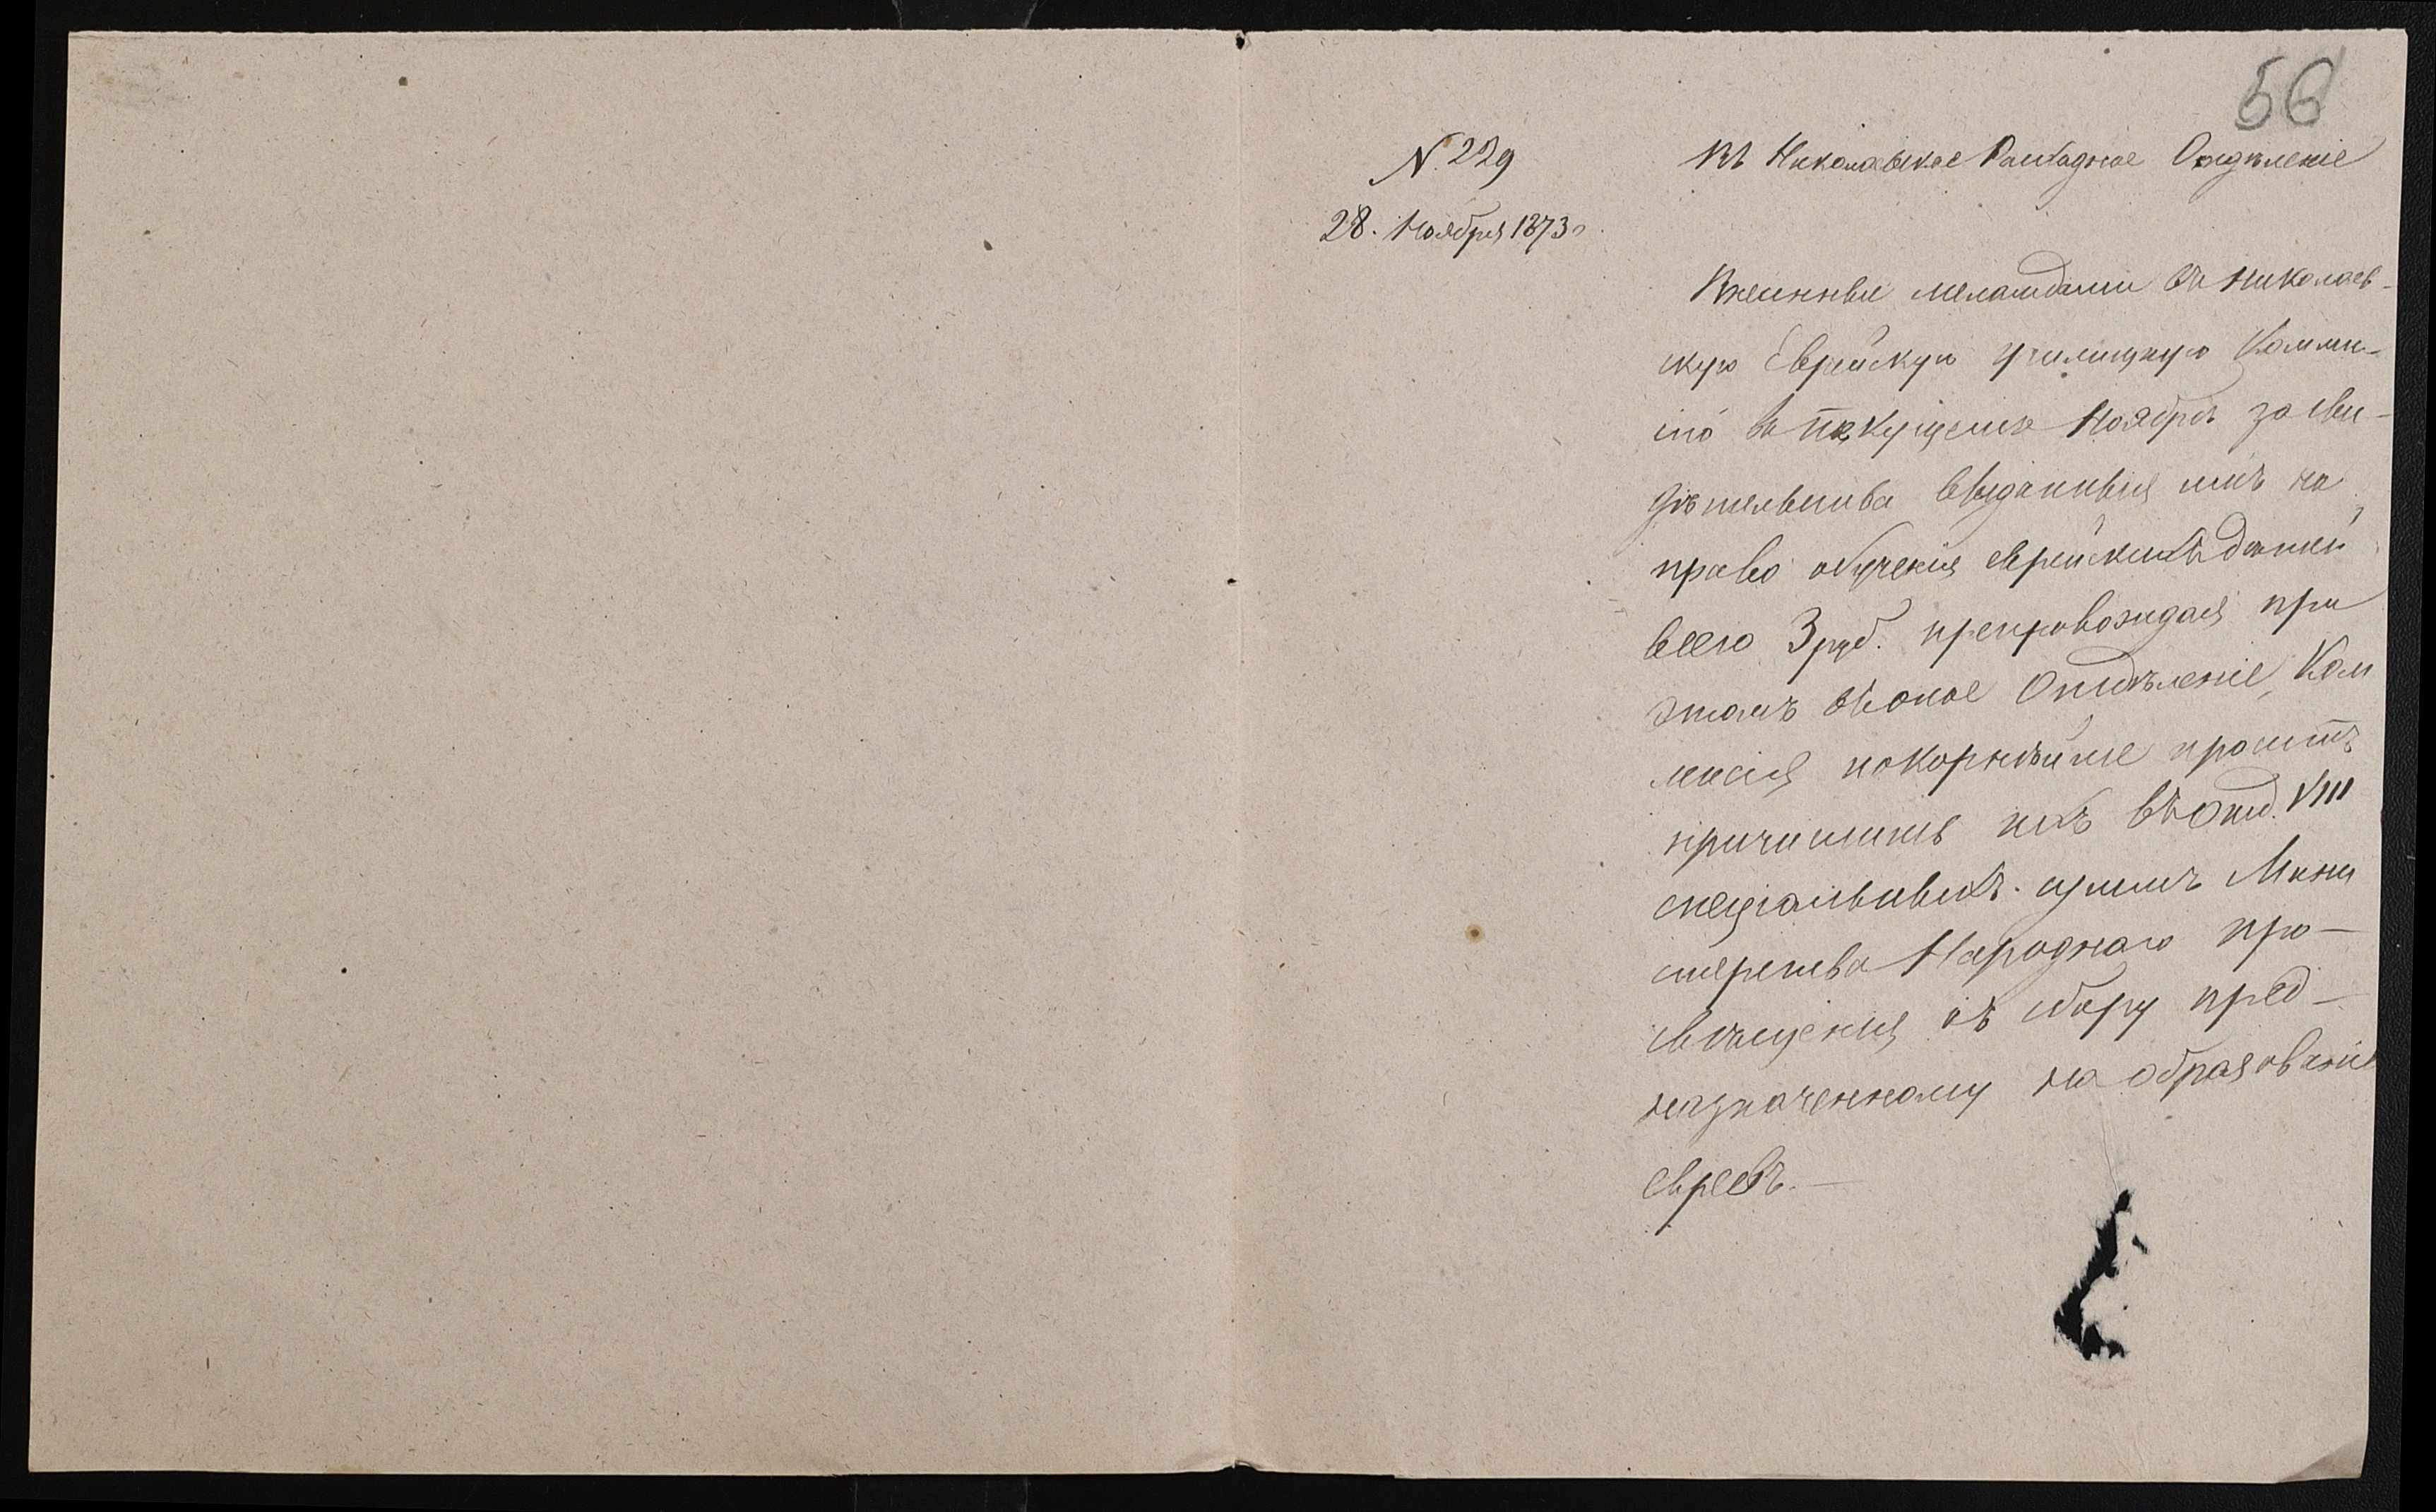 56
N. 229
28. Ноября 1873 г.
Въ Николаевское Расходное Отдѣленіе
Внесенныи меламдами въ Николаев-
скую Еврейскую училищную Комми-
сію въ текущемъ Ноябрѣ за сви-
дѣтельства выданныя имъ на
право обученія еврейскихъ дѣтей
всего 3 руб. препровождая при
этомъ въ оное Отдѣленіе, Ком
мисія покорнѣйше проситъ
причислить ихъ въ отд. VIII
спеціальныхъ суммъ Мини
стерства Народнаго про-
свѣщенія къ сбору пред-
назначенному на образованіе
евреевъ.—